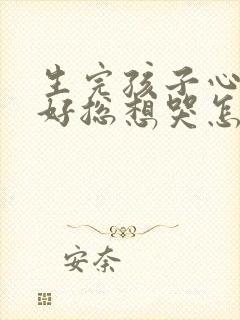 生完孩子心
好总想哭怎
安奈